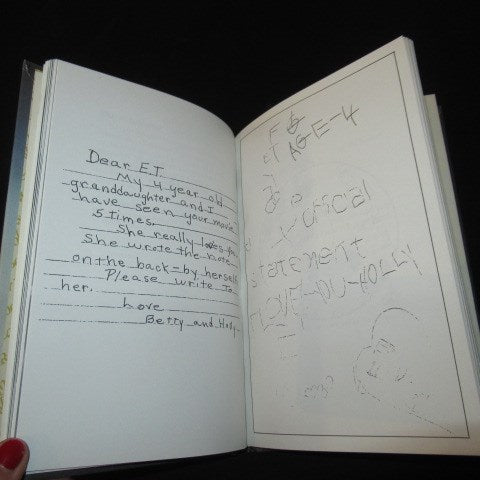 Dear E.T.
My 4 year old
granddaughter and I
have seen your movie
5 times.
She really loves you
She wrote the note
on the back = by herself
Please write to
her.
Love
Betty and Holly
AGE-4
OFICAL
STATEMENT
I LOVE-YOU-HOLLY